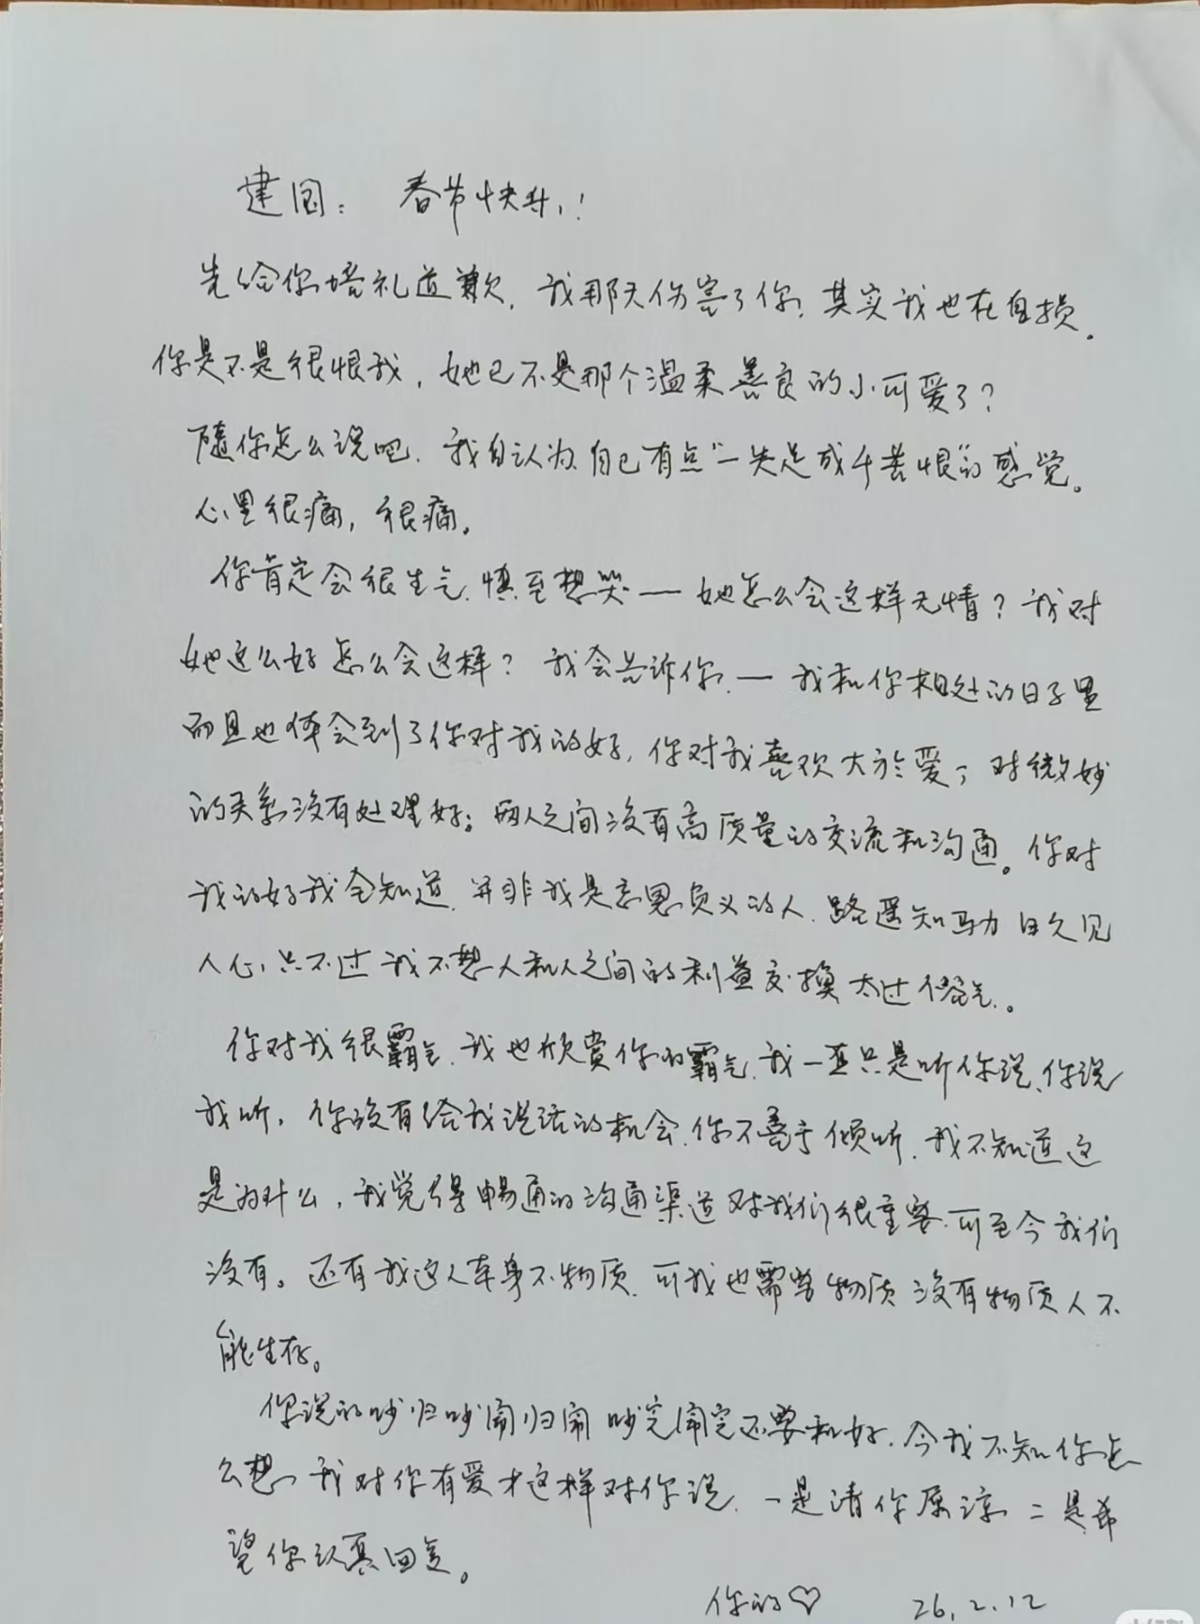 建国：春节快乐！
先给你培礼道歉，我那天伤害了你，其实我也在自损。
你是不是很恨我，她已不是那个温柔善良的小可爱了？
随你怎么说吧，我自认为自己有点“一失足成千苦恨”的感觉。
心里很痛，很痛。
你肯定会很生气，慎至想哭一她怎么会这样无情？我对
她这么好怎么会这样？我会告诉你，一我和你相处的日子里
而且也体会到了你对我的好，你对我喜欢大於爱，对微妙
的关系没有处理好。两人之间没有高质量的交流和沟通。你对
我的好我全知道，并非我是忘恩负义的人，路遥知马力日久见
人心，只不过我不想人和人之间的利益交换太过俗气。
你对我很霸气，我也欣赏你的霸气，我一直只是听你说，你说
我听，你没有给我说话的机会，你不善于倾听，我不知道这
是为什么，我觉得畅通的沟通渠道对我们很重要，可至今我们
没有。还有我这人本身不物质，可我也需要物质没有物质人不
能生存。
你说的吵归吵闹归闹吵完闹完还要和好，今我不知你怎
么想，我对你有爱才这样对你说，一是请你原谅二是希
望你认真回复。
你的♡ 26.2.12